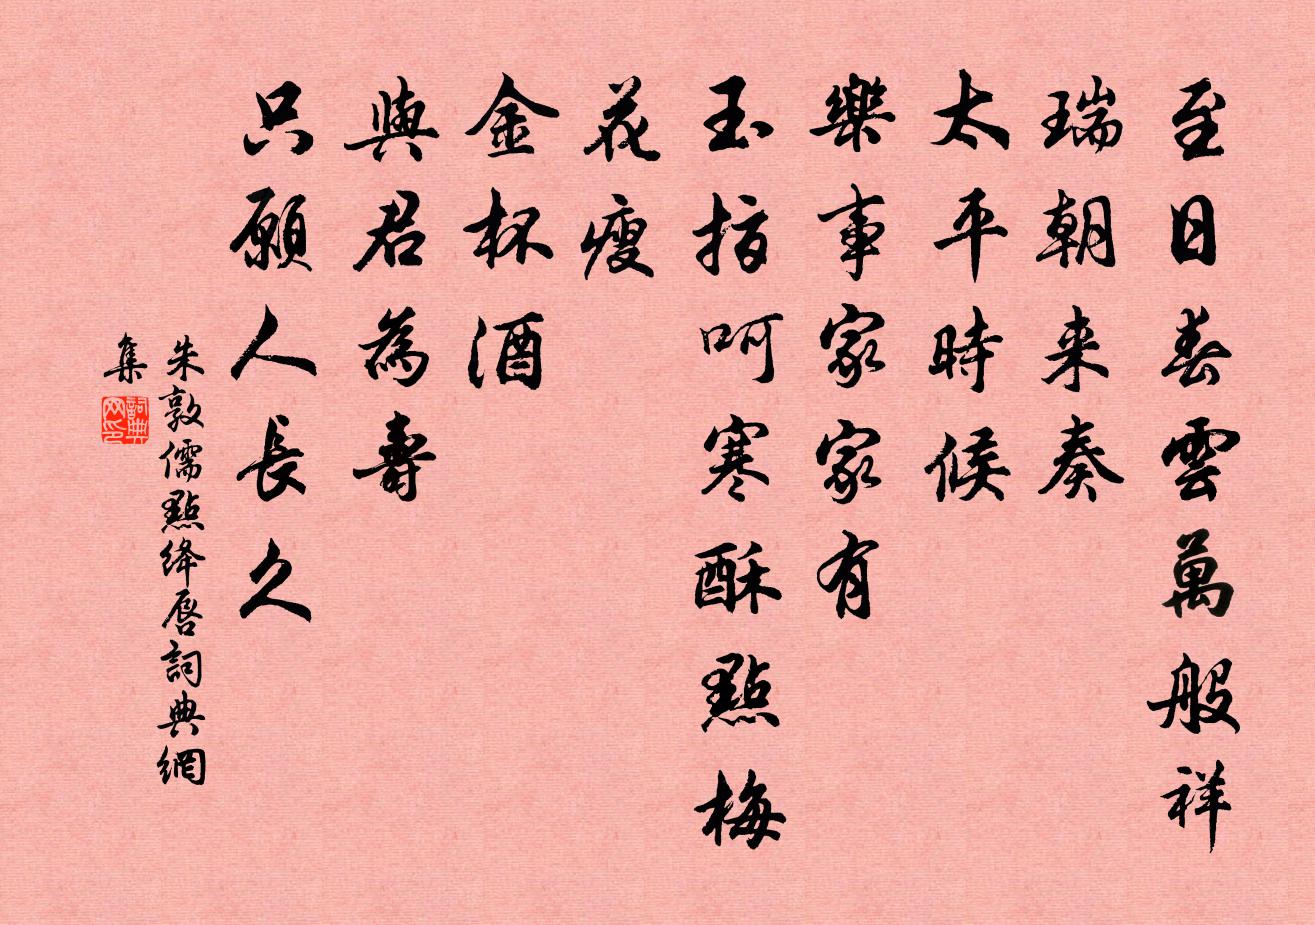 至日春雲萬般祥
瑞朝来奏
太平時候
樂事家家有
玉指呵寒酥點梅
花瘦
金杯酒
與君為壽
只願人長久
朱敦儒點绛唇詞典網
集
詞典網印